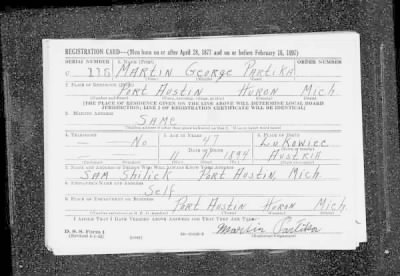 REGISTRATION CARD—(Men born on or after April 28, 1877 and on or before February 16, 1897)
SERIAL NUMBER 1. NAME (Print) ORDER NUMBER
U 115 MARTIN GEORGE PARTIKA
(First) (Middle) (Last)
2. PLACE OF RESIDENCE (Print)
PORT AUSTIN HURON MICH
(Number and street) (Town, township, village, or city) (County) (State)
[THE PLACE OF RESIDENCE GIVEN ON THE LINE ABOVE WILL DETERMINE LOCAL BOARD
JURISDICTION; LINE 2 OF REGISTRATION CERTIFICATE WILL BE IDENTICAL]
3. MAILING ADDRESS
SAME
4. TELEPHONE 5. AGE IN YEARS 6. PLACE OF BIRTH
— NO 47 LUKOWIEC
DATE OF BIRTH
— 11 1894 AUSTRIA
7. NAME AND ADDRESS OF PERSON WHO WILL ALWAYS KNOW YOUR ADDRESS
SAM SHILICK PORT AUSTIN, MICH.
8. EMPLOYER'S NAME AND ADDRESS
SELF
9. PLACE OF EMPLOYMENT OR BUSINESS
PORT AUSTIN HURON MICH
(Number and street or R. F. D. number) (Town) (County) (State)
I AFFIRM THAT I HAVE VERIFIED ABOVE ANSWERS AND THAT THEY ARE TRUE.
D. S. S. Form 1 Martin Partika
(Registrant's signature)